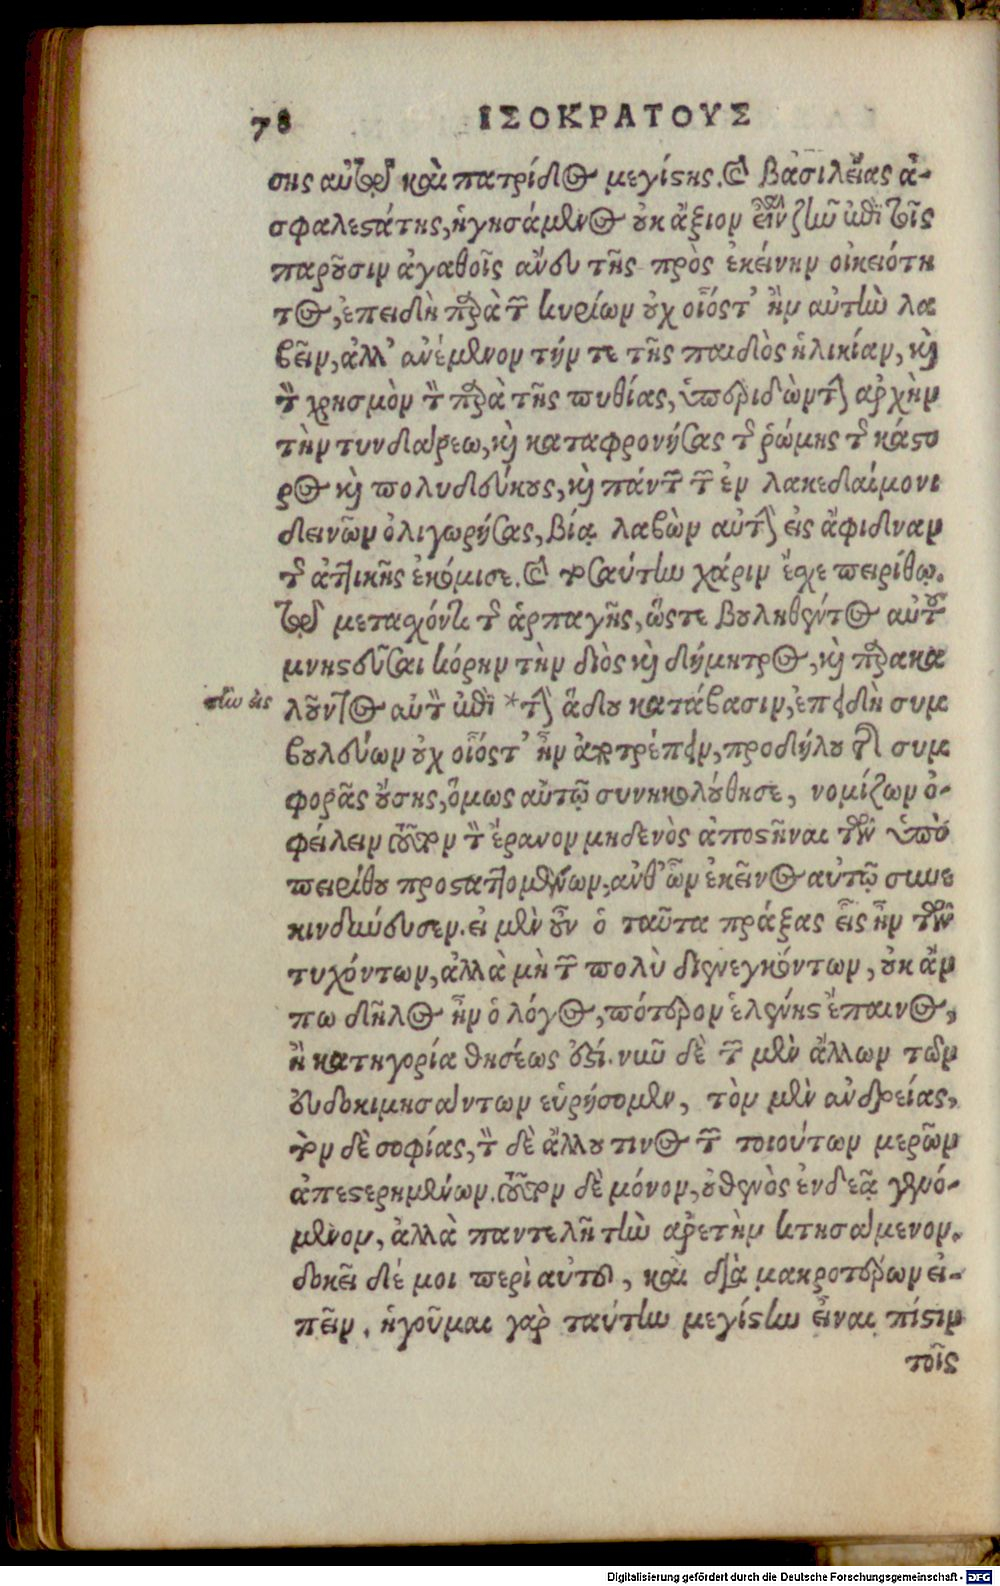 78 ΙΣΟΚΡΑΤΟΥΣ
σης αὐτῷ καὶ πατρίδος μεγίστης, καὶ βασιλείας ἀ-
σφαλεστάτης, ἡγησάμενος οὐκ ἄξιον εἶναι ζῆν ἐπὶ τοῖς
παροῦσιν ἀγαθοῖς ἄνευ τῆς πρὸς ἐκείνην οἰκειότη
τος, ἐπειδὴ παρὰ τῶν κυρίων οὐχ οἷός τ' ἦν αὐτὴν λα
βεῖν, ἀλλ' ἀνέμενον τήν τε τῆς παιδὸς ἡλικίαν, καὶ
τὸν χρησμὸν τὸν παρὰ τῆς πυθίας, ὑπεριδὼν τὴν ἀρχὴν
τὴν τυνδάρεω, καὶ καταφρονήσας τῆς ῥώμης τῆς κάστο
ρος καὶ πολυδεύκους, καὶ πάντων τῶν ἐν λακεδαίμονι
δεινῶν ὀλιγωρήσας, βίᾳ λαβὼν αὐτὴν εἰς ἄφιδναν
τῆς ἀττικῆς ἐκόμισε. καὶ τοσαύτην χάριν ἔσχε πειρίθῳ.
τῷ μετασχόντι τῆς ἁρπαγῆς, ὥστε βουληθέντος αὐτοῦ
μνηστεῦσαι κόρην τὴν διὸς καὶ δήμητρος, καὶ παρακα
τὴν εἰς
λοῦντος αὐτὸν ἐπὶ *τὴν ᾅδου κατάβασιν, ἐπειδὴ συμ
βουλεύων οὐχ οἷός τ' ἦν ἀποτρέπειν, προδήλου τῆς συμ
φορᾶς οὔσης, ὅμως αὐτῷ συνηκολούθησε, νομίζων ὀ-
φείλειν τοῦτον τὸν ἔρανον μηδενὸς ἀποστῆναι τῶν ὑπὸ
πειρίθου προσταττομένων, ἀνθ' ὧν ἐκεῖνος αὐτῷ συνε
κινδύνευσεν. εἰ μὲν οὖν ὁ ταῦτα πράξας εἷς ἦν τῶν
τυχόντων, ἀλλὰ μὴ τῶν πολὺ διενεγκόντων, οὐκ ἄν
πω δῆλος ἦν ὁ λόγος, πότερον ἑλένης ἔπαινος,
ἢ κατηγορία θησέως ἐστί. νῦν δὲ τῶν μὲν ἄλλων τῶν
εὐδοκιμησάντων εὑρήσομεν, τὸν μὲν ἀνδρείας,
τὸν δὲ σοφίας, τὸν δὲ ἄλλου τινὸς τῶν τοιούτων μερῶν
ἀπεστερημένων. τοῦτον δὲ μόνον, οὐθενὸς ἐνδεᾶ γενό-
μενον, ἀλλὰ παντελῆ τὴν ἀρετὴν κτησάμενον.
δοκεῖ δέ μοι περὶ αὐτοῦ, καὶ διὰ μακροτέρων εἰ-
πεῖν. ἡγοῦμαι γὰρ ταύτην μεγίστην εἶναι πίστιν
τοῖς
Digitalisierung gefördert durch die Deutsche Forschungsgemeinschaft - DFG